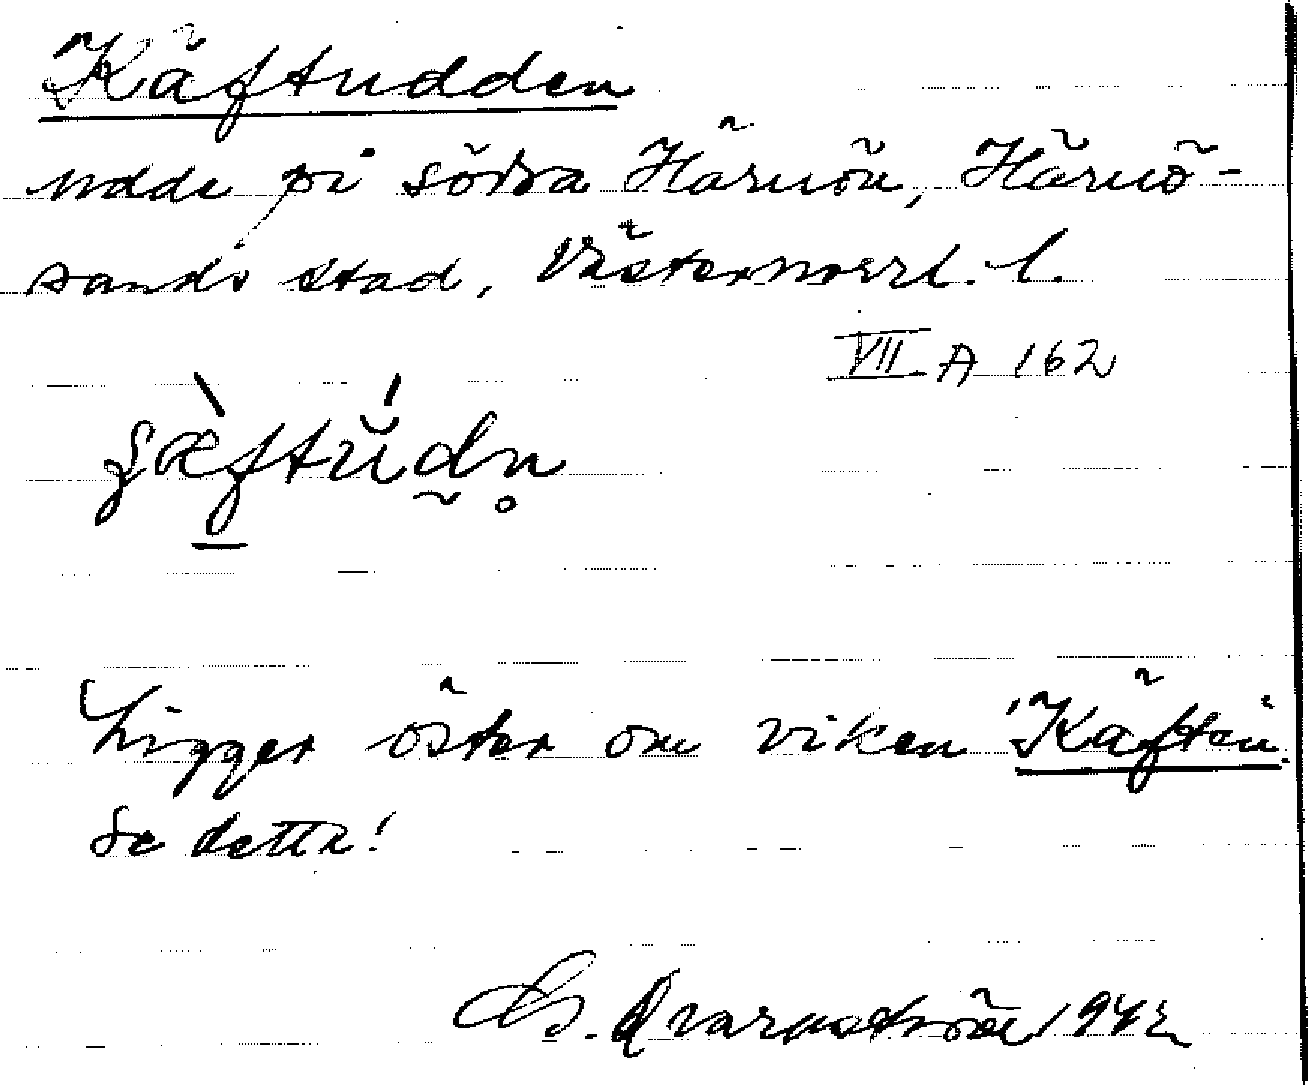 Käftudden
udde på södra Härnön, Härnö-
sands stad, Västernorrl. l.
VII A 162
Ligger öster om viken 'Käften'.
Se detta!
Qvarnström 1942